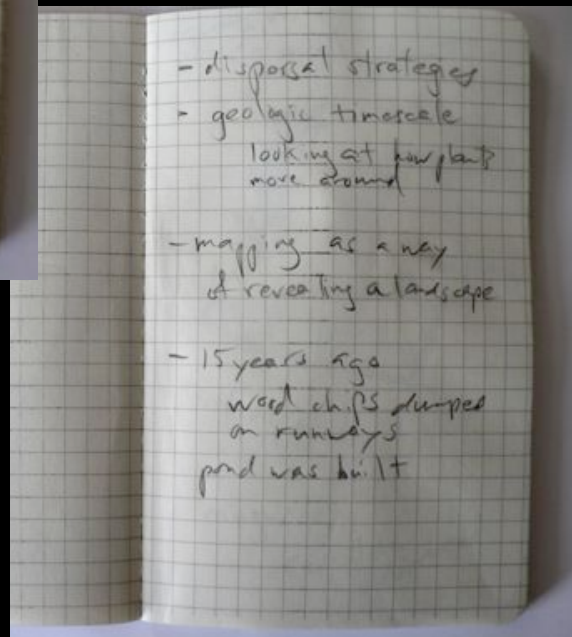 - dispersal strategies
- geologic timescale
looking at how plants
more around
- mapping as a way
of revealing a landscape
- 15 years ago
wood chips dumped
on runways
pond was built